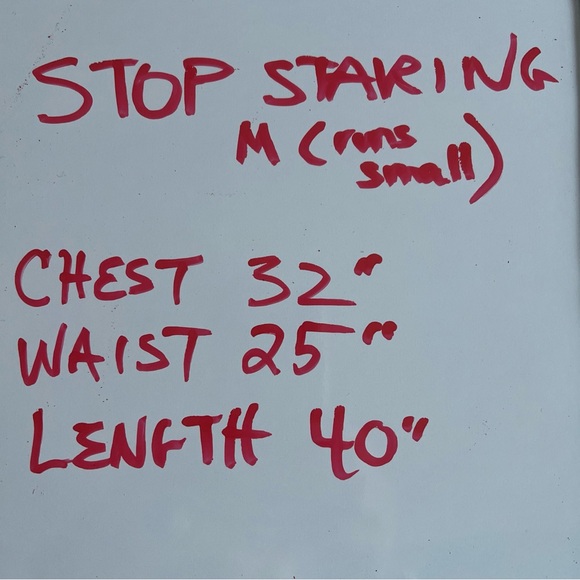 STOP STARING
M (runs
small)
CHEST 32"
WAIST 25"
LENGTH 40"